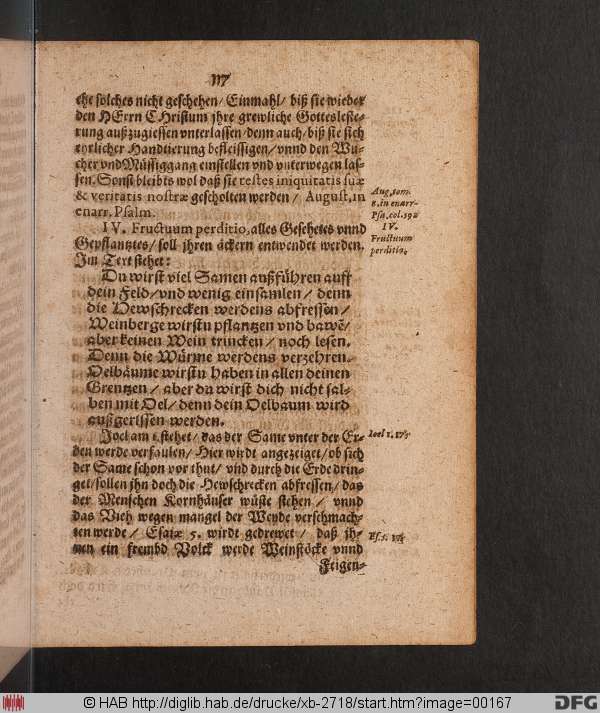 117
che solches nicht geschehen/ Einmahl/ biß sie wieder
den HErrn CHristum jhre grewliche Gottesleste-
rung außzugiessen vnterlassen/denn auch/ biß sie sich
ehrlicher Handtierung befleissigen/ vnnd den Wu-
cher vnd Müssiggang einstellen vnd vnterwegen las-
sen. Sonst bleibts wol daß sie testes iniquitatis suæ
& veritatis nostræ gescholten werden/ August, in
enarr. Psalm.
Aug. tom.
8. in enarr.
Psa. col. 592
IV. Fructuum perditio, alles Geseheres vnnd
Gepflantztes/ soll jhren äckern entwendet werden.
Im Text stehet:
IV.
Fructuum
perditio.
Du wirst viel Samen außführen auff
dein Feld/vnd wenig einsamlen/ denn
die Hewschrecken werdens abfressen/
Weinberge wirstu pflantzen vnd bawē/
aber keinen Wein trincken/ noch lesen.
Denn die Würme werdens verzehren.
Oelbäume wirstu haben in allen deinen
Grentzen/ aber du wirst dich nicht sal-
ben mit Oel/ denn dein Oelbaum wird
außgerissen werden.
Joel am 1. stehet/ das der Same vnter der Er-
den werde verfaulen/ Hier wirdt angezeiget/ ob sich
der Same schon vor thut/ vnd durch die Erde drin-
get/sollen jhn doch die Hewschrecken abfressen/ das
der Menschen Kornhäuser wüste stehen/ vnnd
das Vieh wegen mangel der Weyde verschmach-
ten werde/ Esaiæ 5. wirdt gedrewet/ daß jh-
nen ein frembd Volck werde Weinstöcke vnnd
Feigen-
Ioel 1. 17.
Es. 5. 17.
© HAB http://diglib.hab.de/drucke/xb-2718/start.htm?image=00167
DFG